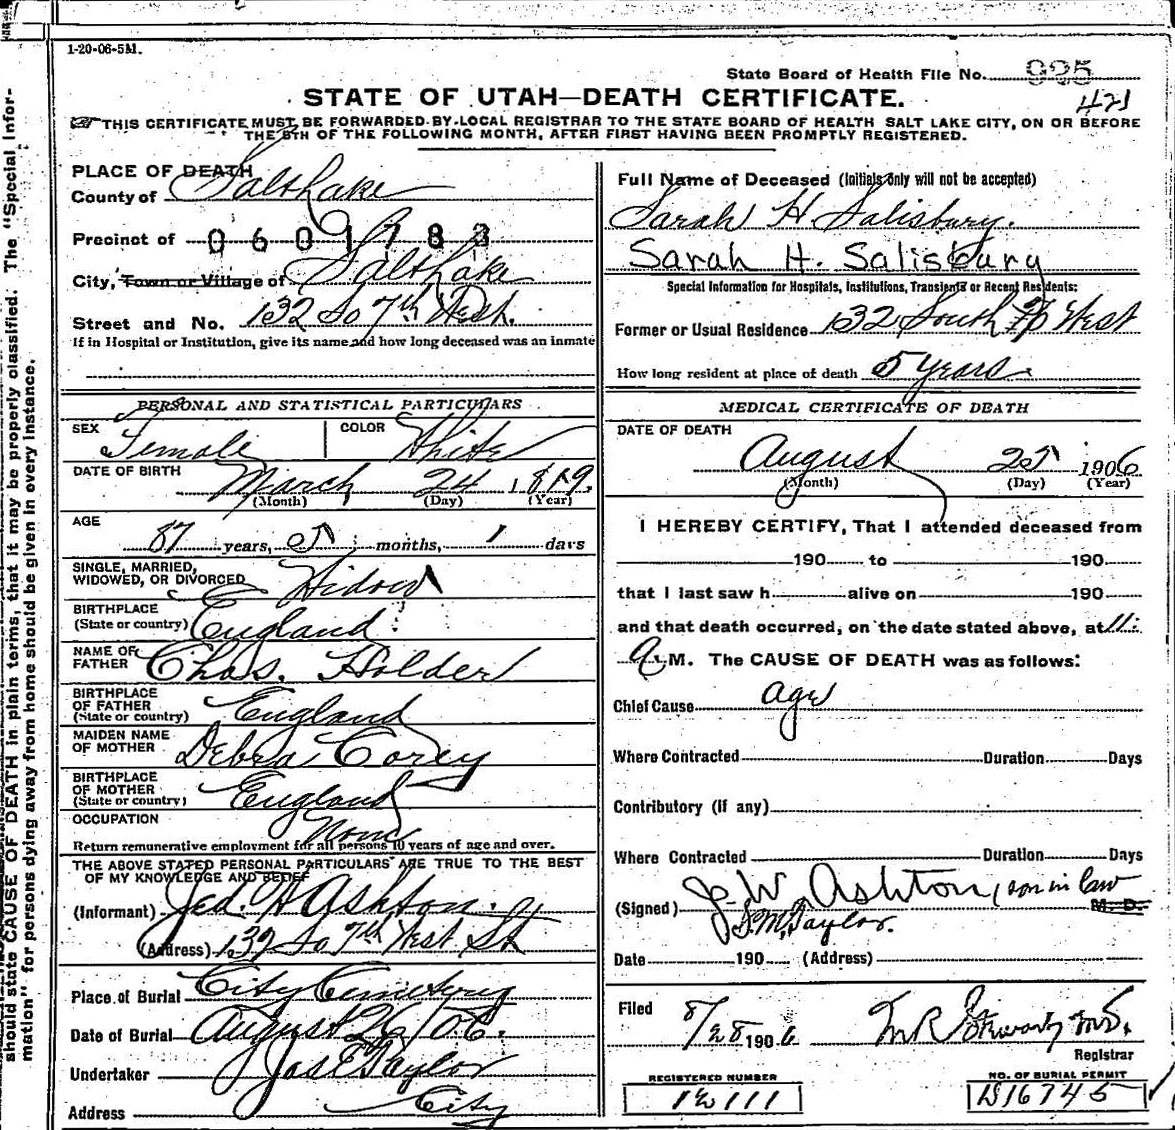 1-20-06-5M.
State Board of Health File No. 995
421
STATE OF UTAH—DEATH CERTIFICATE.
THIS CERTIFICATE MUST BE FORWARDED BY LOCAL REGISTRAR TO THE STATE BOARD OF HEALTH SALT LAKE CITY, ON OR BEFORE
THE 5TH OF THE FOLLOWING MONTH, AFTER FIRST HAVING BEEN PROMPTLY REGISTERED.
should state CAUSE OF DEATH in plain terms, that it may be properly classified. The "Special Infor-
mation" for persons dying away from home should be given in every instance.
PLACE OF DEATH
County of Salt Lake
Precinct of 0601783
City, Town or Village of Salt Lake
Street and No. 132 So 7th West.
If in Hospital or Institution, give its name and how long deceased was an inmate
PERSONAL AND STATISTICAL PARTICULARS
SEX Female COLOR White
DATE OF BIRTH March 24 1819.
(Month) (Day) (Year)
AGE
87 years, 5 months, 1 days
SINGLE, MARRIED,
WIDOWED, OR DIVORCED Widow
BIRTHPLACE
(State or country) England
NAME OF
FATHER Chas. Holder
BIRTHPLACE
OF FATHER
(State or country) England
MAIDEN NAME
OF MOTHER Debra Corey
BIRTHPLACE
OF MOTHER
(State or country) England
OCCUPATION None
Return remunerative employment for all persons 10 years of age and over.
THE ABOVE STATED PERSONAL PARTICULARS ARE TRUE TO THE BEST
OF MY KNOWLEDGE AND BELIEF
(Informant) Jed. W Ashton.
(Address) 132 So 7th West St
Place of Burial City Cemetery
Date of Burial August 26/06.
Undertaker Jos E Taylor
Address City
Full Name of Deceased (Initials only will not be accepted)
Sarah H Salisbury.
Sarah H. Salisbury
Special Information for Hospitals, Institutions, Transients or Recent Residents:
Former or Usual Residence 132 South 7th West
How long resident at place of death 5 Years.
MEDICAL CERTIFICATE OF DEATH
DATE OF DEATH
August 25 1906
(Month) (Day) (Year)
I HEREBY CERTIFY, That I attended deceased from
190 to 190
that I last saw h alive on 190
and that death occurred, on the date stated above, at 11:
a M. The CAUSE OF DEATH was as follows:
Chief Cause age
Where Contracted Duration Days
Contributory (if any)
Where Contracted Duration Days
(Signed) J. W. Ashton, son in law M. D.
S. M. Taylor.
Date 190 (Address)
Filed 8/28 1906
Registrar
REGISTERED NUMBER NO. OF BURIAL PERMIT